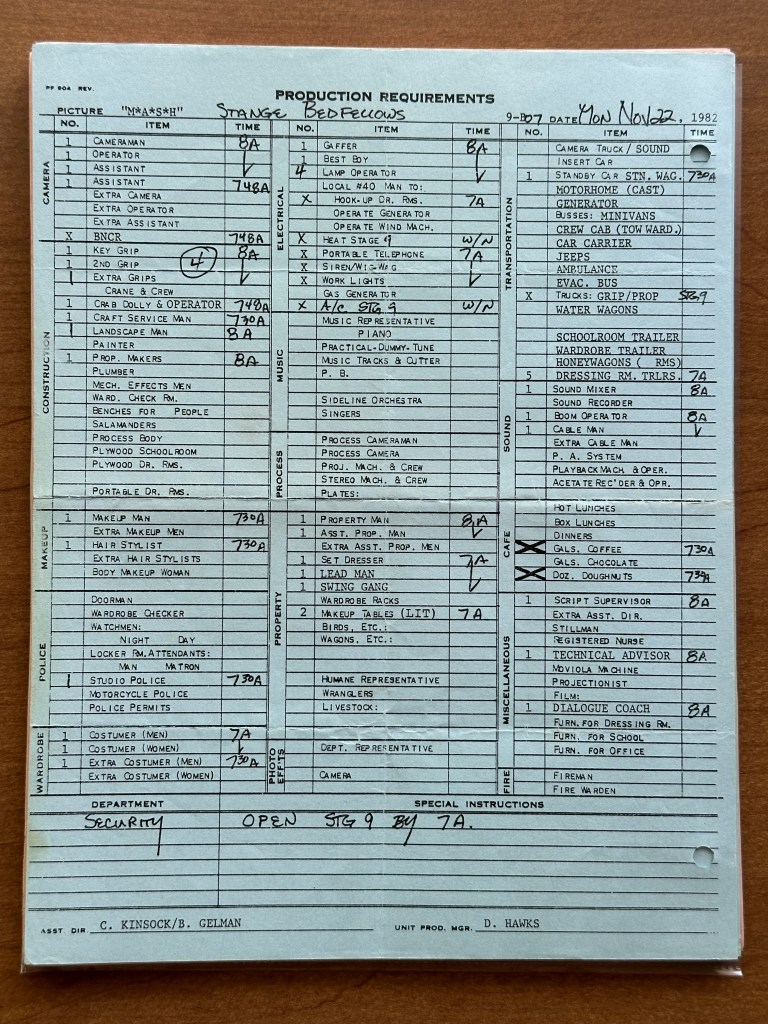 PF 904 REV.
PRODUCTION REQUIREMENTS
PICTURE "M*A*S*H" STANGE BEDFELLOWS 9-B07 DATE MON NOV 22, 1982
NO. ITEM TIME
CAMERA
1 CAMERAMAN 8A
1 OPERATOR
1 ASSISTANT
1 ASSISTANT 748A
EXTRA CAMERA
EXTRA OPERATOR
EXTRA ASSISTANT
X BNCR 748A
CONSTRUCTION
1 KEY GRIP 8A
1 2ND GRIP 4
1 EXTRA GRIPS
CRANE & CREW
1 CRAB DOLLY & OPERATOR 748A
1 CRAFT SERVICE MAN 730A
1 LANDSCAPE MAN 8A
PAINTER
1 PROP. MAKERS 8A
PLUMBER
MECH. EFFECTS MEN
WARD. CHECK RM.
BENCHES FOR PEOPLE
SALAMANDERS
PROCESS BODY
PLYWOOD SCHOOLROOM
PLYWOOD DR. RMS.
PORTABLE DR. RMS.
MAKEUP
1 MAKEUP MAN 730A
EXTRA MAKEUP MEN
1 HAIR STYLIST 730A
EXTRA HAIR STYLISTS
BODY MAKEUP WOMAN
POLICE
DOORMAN
WARDROBE CHECKER
WATCHMEN:
NIGHT DAY
LOCKER RM. ATTENDANTS:
MAN MATRON
1 STUDIO POLICE 730A
MOTORCYCLE POLICE
POLICE PERMITS
WARDROBE
1 COSTUMER (MEN) 7A
1 COSTUMER (WOMEN)
1 EXTRA COSTUMER (MEN) 730A
EXTRA COSTUMER (WOMEN)
NO. ITEM TIME
ELECTRICAL
1 GAFFER 8A
1 BEST BOY
4 LAMP OPERATOR
LOCAL #40 MAN TO:
X HOOK-UP DR. RMS. 7A
OPERATE GENERATOR
OPERATE WIND MACH.
X HEAT STAGE 9 W/N
X PORTABLE TELEPHONE 7A
X SIREN/WIG-WAG
X WORK LIGHTS
GAS GENERATOR
X A/C STG 9 W/N
MUSIC
MUSIC REPRESENTATIVE
PIANO
PRACTICAL-DUMMY-TUNE
MUSIC TRACKS & CUTTER
P. B.
SIDELINE ORCHESTRA
SINGERS
PROCESS
PROCESS CAMERAMAN
PROCESS CAMERA
PROJ. MACH. & CREW
STEREO MACH. & CREW
PLATES:
PROPERTY
1 PROPERTY MAN 8A
1 ASST. PROP. MAN
EXTRA ASST. PROP. MEN
1 SET DRESSER 7A
1 LEAD MAN
1 SWING GANG
WARDROBE RACKS
2 MAKEUP TABLES (LIT) 7A
BIRDS, ETC.:
WAGONS, ETC.:
HUMANE REPRESENTATIVE
WRANGLERS
LIVESTOCK:
PHOTO EFF'TS
DEPT. REPRESENTATIVE
CAMERA
NO. ITEM TIME
TRANSPORTATION
CAMERA TRUCK / SOUND
INSERT CAR
1 STANDBY CAR STN. WAG. 730A
MOTORHOME (CAST)
GENERATOR
BUSSES: MINIVANS
CREW CAB (TOW WARD.)
CAR CARRIER
JEEPS
AMBULANCE
EVAC. BUS
X TRUCKS: GRIP/PROP STG 9
WATER WAGONS
SCHOOLROOM TRAILER
WARDROBE TRAILER
HONEYWAGONS ( RMS)
5 DRESSING RM. TRLRS. 7A
SOUND
1 SOUND MIXER 8A
SOUND RECORDER
1 BOOM OPERATOR 8A
1 CABLE MAN
EXTRA CABLE MAN
P. A. SYSTEM
PLAYBACK MACH. & OPER.
ACETATE REC'DER & OPR.
CAFE
HOT LUNCHES
BOX LUNCHES
DINNERS
X GALS. COFFEE 730A
GALS. CHOCOLATE
X DOZ. DOUGHNUTS 730A
MISCELLANEOUS
1 SCRIPT SUPERVISOR 8A
EXTRA ASST. DIR.
STILLMAN
REGISTERED NURSE
1 TECHNICAL ADVISOR 8A
MOVIOLA MACHINE
PROJECTIONIST
FILM:
1 DIALOGUE COACH 8A
FURN. FOR DRESSING RM.
FURN. FOR SCHOOL
FURN. FOR OFFICE
FIRE
FIREMAN
FIRE WARDEN
DEPARTMENT SPECIAL INSTRUCTIONS
SECURITY OPEN STG 9 BY 7A.
ASST. DIR. C. KINSOCK/B. GELMAN UNIT PROD. MGR. D. HAWKS